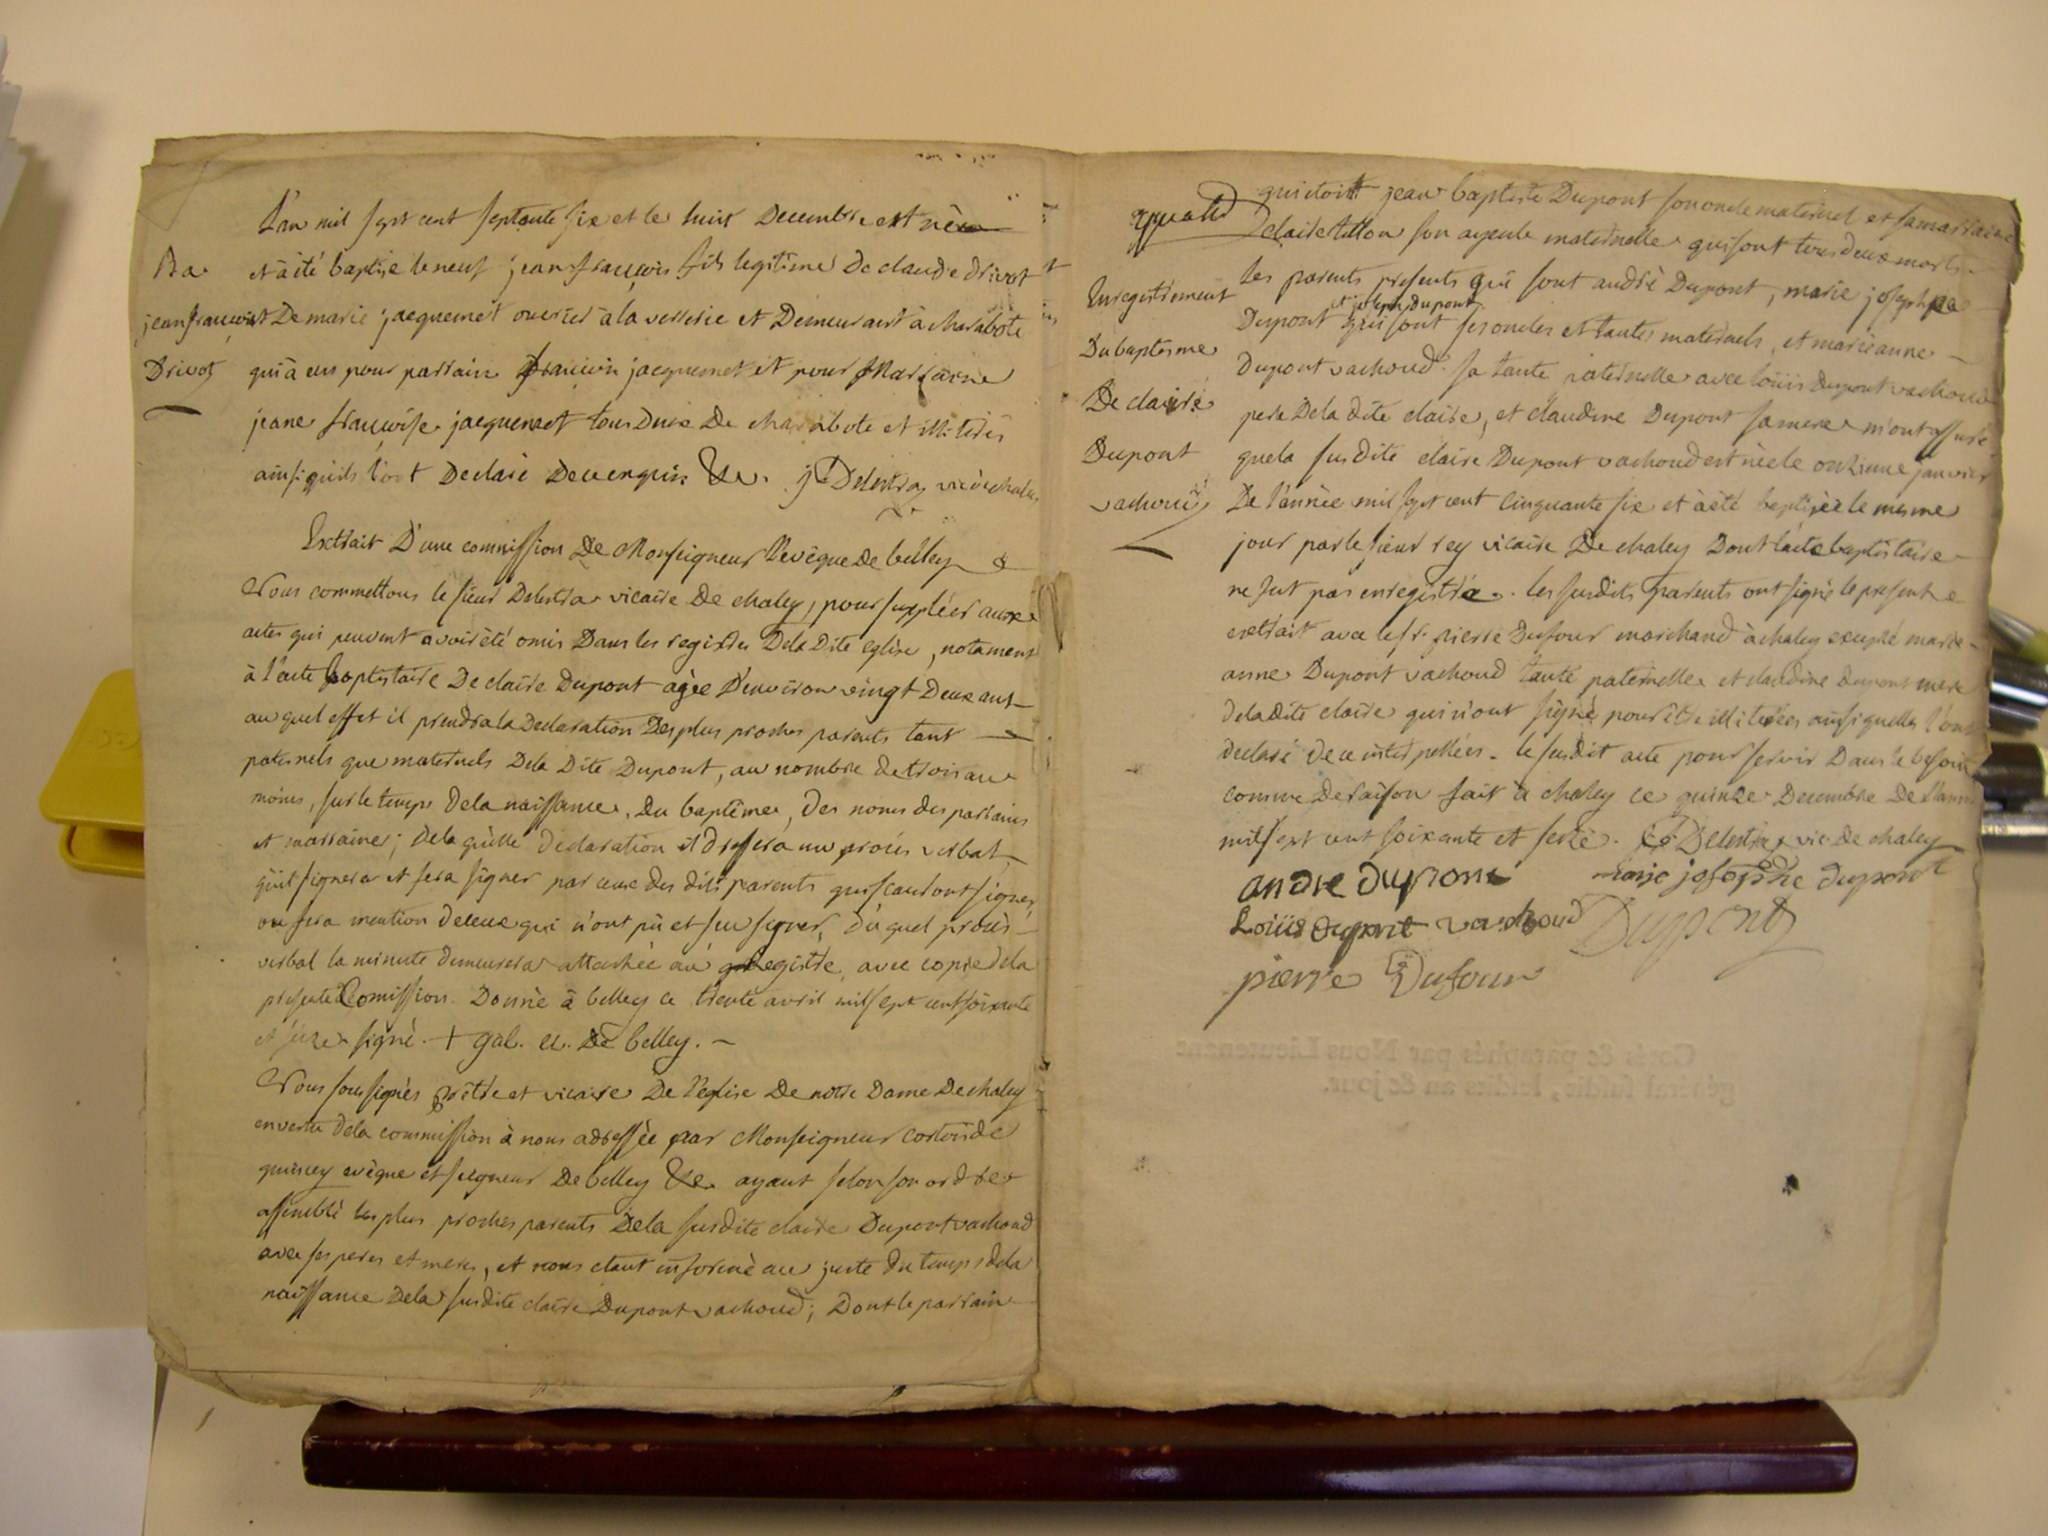 L'an mil sept cent septante six et le huit Decembre est nè
Ba et à été baptisé le neuf jean françois fils legitime De claude drivot
jean françois et De marie jacquemet ouvrier à la verrerie et Demeurant à charabote
Drivot qui à eus pour parrain francois jacquemet et pour Marraine
jeane françoise jacquemet tous Deux De charabote et illiterés
ainsi quils l'ont Declaré De ce enquis &c. j Delestra vic de chaley
Extrait D'une commission De Monseigneur l'evêque De belley
Nous commettons le sieur Delestra vicaire De chaley, pour suppléer aux
actes qui peuvent avoir été omis Dans les registres Dela Dite eglise, notament
à l'acte baptistaire De claire Dupont agée D'environ vingt Deux ans
au quel effet il prendra la Declaration Des plus proches parents tant
paternels que maternels Dela Dite Dupont, au nombre de trois au
moins, sur le temps dela naissance, Du baptême, des noms des parrains
et marraine; dela quelle declaration il dressera un procés verbal
qu'il signera et fera signer par ceux des dits parents qui scauront signer,
ou fera mention de ceux qui n'ont pû et sçu signer, du quel procès
verbal la minute demeurera attachée au registre, avec copie dela
presente Comission. Donnè à belley ce trente avril mil sept cent soixante
et seize signé. + gab. ev. De belley.
Nous sousignés prêtre et vicaire De l'eglise De notre Dame De chaley
en vertu dela commission à nous adressée par Monseigneur cortois de
quincey evêque et seigneur De belley &c ayant selon son ordre
assemblè les plus proches parents Dela susdite claire Dupont vachoud
avec ses peres et meres, et nous etant informè au juste du temps dela
naissance Dela susdite claire Dupont vachoud; Dont le parrain
qui etoit jean baptiste Dupont son oncle maternel et sa marraine
claire tillon son ayeule maternelle qui sont tous deux morts
les parents presents qui sont andrè Dupont, marie josephpe
et joseph dupont
Enregistrement Dupont qui sont ses oncles et tantes maternels, et marie anne
Du baptesme Dupont vachoud sa tante paternelle avec loüis Dupont vachoud
De claire pere Dela dite claire, et claudine Dupont sa mere m'ont assuré
Dupont que la susdite claire Dupont vachoud est nèe le onzieme janvier
vachoud De l'année mil sept cent cinquante six et à été baptisèe le mesme
jour par le sieur rey vicaire De chaley Dont l'acte baptistaire
ne fut pas enregistré. les susdits parents ont signè le present
extrait avec le sr. pierre Dufour marchand à chaley excepté marie
anne Dupont vachoud tante paternelle et claudine dupont mere
dela dite claire qui n'ont signè pour être illiterées ainsi quelles l'ont
declaré de ce interpellées. le susdit acte pour servir Dans le besoin
comme de raison fait à chaley ce quinze Decembre De l'anné
mil sept cent soixante et seize. Delestra vic. de chaley
andre dupont marie josephe dupont
Loüis dupont vachoud Dupont
pierre Dufour
Cotés & paraphés par Nous Lieutenent
général susdit, lesdits an & jour.